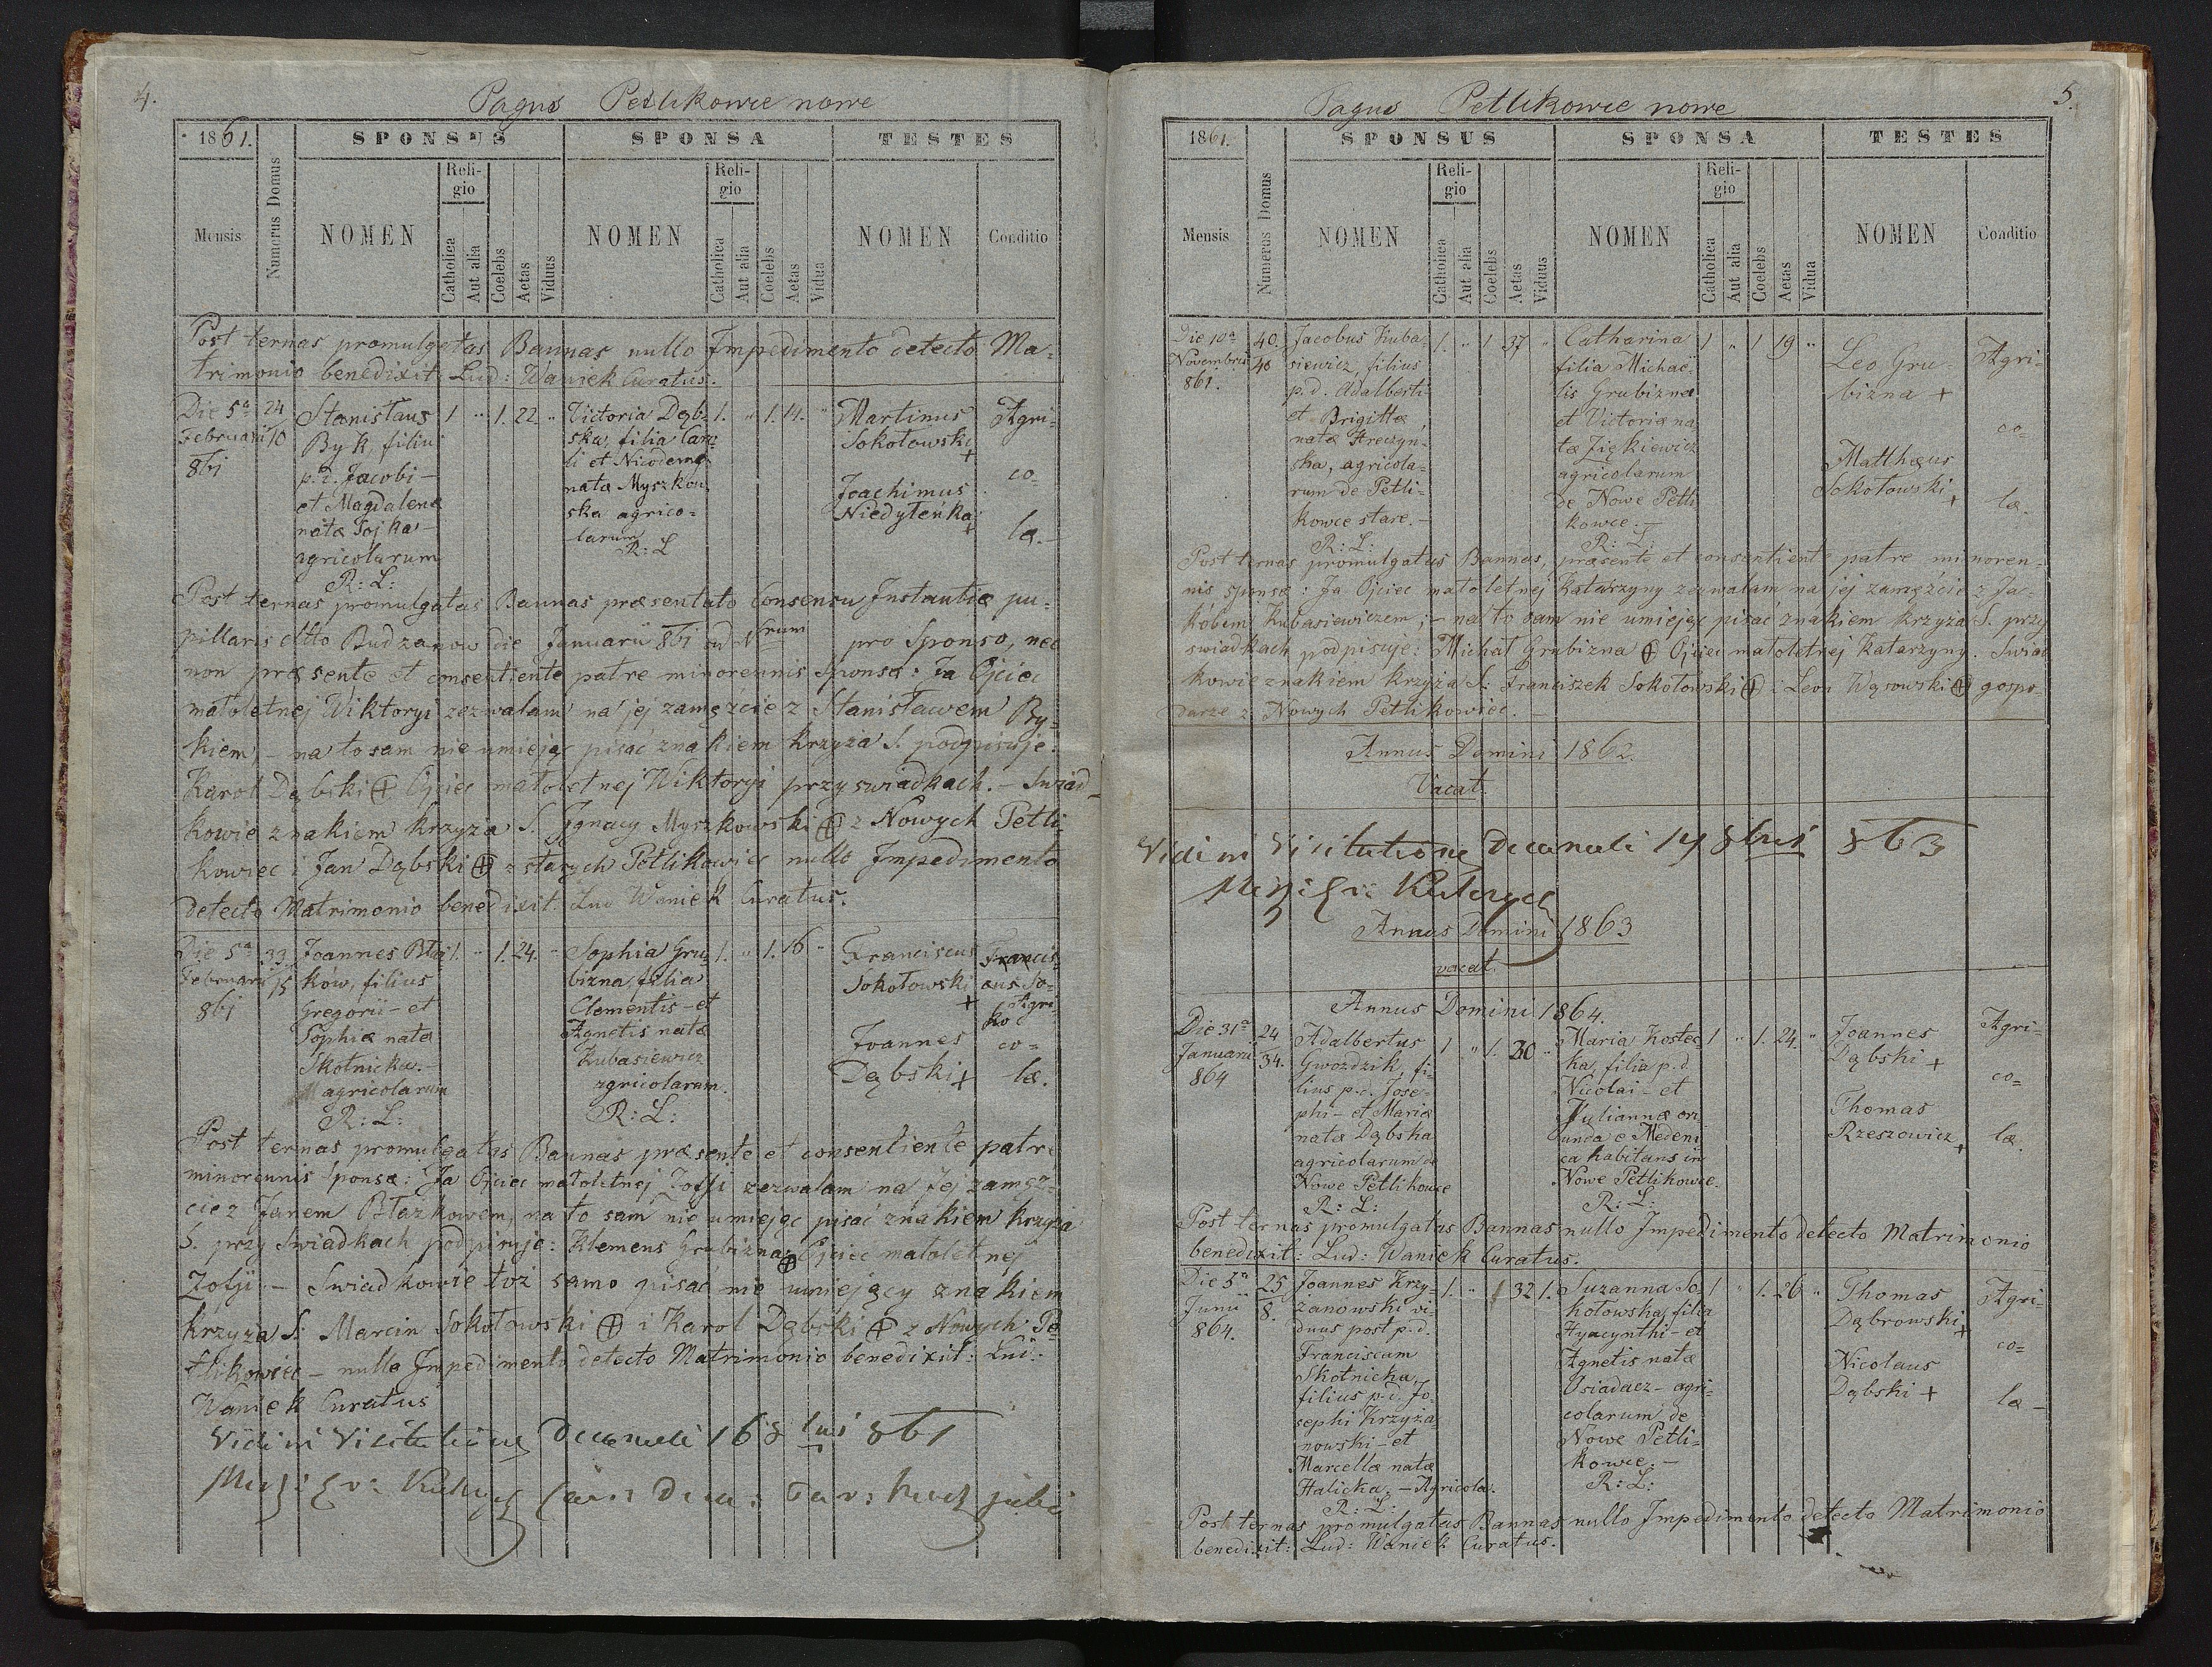 4.
Pagus Petlikowce nowe
1861.
SPONSUS
SPONSA
TESTES
Mensis
Numerus Domus
NOMEN
Religio
Catholica
Aut alia
Coelebs
Aetas
Viduus
NOMEN
Religio
Catholica
Aut alia
Coelebs
Aetas
Vidua
NOMEN
Conditio
Post ternas promulgatas Bannas nullo Impedimento detecto Ma-
trimonio benedixit. Lud: Waniek Curatus.
Die 5ª
Februarii
861
24
10
Stanislaus
Byk, filius
p.d. Jacobi -
et Magdalenæ
natæ Sojka -
agricolarum
R: L:
1 " 1. 22. "
Victoria Dąb-
ska, filia Caro-
li et Nicodema
nata Myszkow-
ska agrico-
larum
R: L
1. " 1. 14. "
Martinus
Sokołowski
+
Joachimus
Niedyleńka
+
Agri-
co-
læ.-
Post ternas promulgatas Bannas præsentato Consensu Instantiæ pu-
pillaris dtto Budzanow die Januarii 861 ad Nrum pro Sponso, nec
non præsente et consentiente patre minorennis Sponsæ: Ja Ojciec
małoletnej Wiktoryi zezwalam na jej zamęźcie z Stanisławem By-
kiem, - na to sam nie umiejąc pisać znakiem krzyża S. podpisuje:
Karol Dąbski ⊕ Ojciec małoletnej Wiktoryi przy swiadkach. - Swiad-
kowie znakiem krzyża S. Jgnacy Myszkowski ⊕ z Nowych Petli-
kowiec i Jan Dąbski ⊕ z starych Petlikowiec nullo Impedimento
detecto Matrimonio benedixit. Lud Waniek Curatus.
Die 5ª
Februarii
861
33
15
Joannes Bła-
ków, filius
Gregorii - et
Sophiæ natæ
Skotnicka. -
agricolarum
R: L:
1. " 1. 24. "
Sophia Gru-
bizna, filia
Clementis - et
Agnetis natæ
Kubasiewicz
agricolarum.
R: L:
1. " 1. 16 "
Franciscus
Sokołowski
+
Joannes
Dąbski +
Francis-
cus So-
ko
Agri
co-
læ.
Post ternas promulgatas Bannas præsente et consentiente patre
minorennis Sponsæ: Ja Ojciec małoletnej Zofji zezwalam na jej zamęz-
cie z Janem Błazkowem, na to sam nie umiejąc pisać znakiem krzyża
S. przy Swiadkach podpisuje: Klemens Grubizna ⊕ Ojciec małoletnej
Zofji. - Swiadkowie toż samo pisać nie umiejący znakiem
krzyża S: Marcin Sokołowski ⊕ i Karol Dąbski ⊕ z Nowych Pe-
tlikowiec - nullo Impedimento detecto Matrimonio benedixit: Lud:
Waniek Curatus
Vidi in Visitatione Decanali 16 8bris 861
5.
Pagus Petlikowce nowe
1861.
SPONSUS
SPONSA
TESTES
Mensis
Numerus Domus
NOMEN
Religio
Catholica
Aut alia
Coelebs
Aetas
Viduus
NOMEN
Religio
Catholica
Aut alia
Coelebs
Aetas
Vidua
NOMEN
Conditio
Die 10ª
Novembris
861.
40.
46
Jacobus Kuba-
siewicz, filius
p.d. Adalberti
et Brigittæ
natæ Hreczyn-
ska, agricola-
rum de Petli-
kowce stare. -
R: L:
1. " 1 37 "
Catharina
filia Michaë-
lis Grubizna
et Victoriæ na-
tæ Ziękiewicz
agricolarum
de Nowe Petli
kowce. -
R: L:
1 " 1 19 "
Leo Gru-
bizna +
Matthæus
Sokołowski
+
Agri-
co-
læ.
Post ternas promulgatas Bannas, præsente et consentiente patre minoren-
nis Sponsæ: Ja Ojciec małoletnej Katarzyny zezwalam na jej zamęźcie z Ja-
kóbem Kubasiewiczem; - na to sam nie umiejąc pisać znakiem krzyża S. przy
swiadkach podpisuje: Michał Grubizna ⊕ Ojciec małoletnej Katarzyny. Swiad
kowie znakiem krzyża S: Franciszek Sokołowski ⊕ i Leon Wąsowski ⊕ gospo-
darze z Nowych Petlikowiec. -
Annus Domini 1862.
Vacat.
Vidi in Visitatione Decanali 14 8bris 863
Annus Domini 1863
vacat.
Annus Domini 1864.
Die 31ª
Januarii
864
24
34.
Adalbertus
Gwozdzik, fi-
lius p.d. Jose-
phi - et Mariæ
natæ Dąbska
agricolarum de
Nowe Petlikowce
R: L:
1 " 1. 30 "
Maria Kostec-
ka, filia p.d.
Nicolai - et
Juliannæ ori-
unda e Medeni
ca habitans in
Nowe Petlikowce.
R: L:
1 " 1. 24. "
Joannes
Dąbski +
Thomas
Rzeszowicz
+
Agri-
co-
læ.
Post ternas promulgatas Bannas nullo Impedimento detecto Matrimonio
benedixit: Lud: Waniek Curatus.
Die 5ª
Junii
864.
25
8.
Joannes Krzy-
żanowski vi-
duus post p.d.
Franciscam
Skotnicka,
filius p.d. Jo-
sephi Krzyża
nowski - et
Marcellæ natæ
Halicka. - Agricola.
R: L:
1. " 32 1.
Suzanna So-
kołowska, filia
Hyacynthi - et
Agnetis natæ
Osiadacz - agri-
colarum de
Nowe Petli-
kowce. -
R: L:
1 " 1. 26 "
Thomas
Dąbrowski
+
Nicolaus
Dąbski +
Agri-
co-
læ -
Post ternas promulgatas Bannas nullo Impedimento detecto Matrimonio
benedixit: Lud: Waniek Curatus.